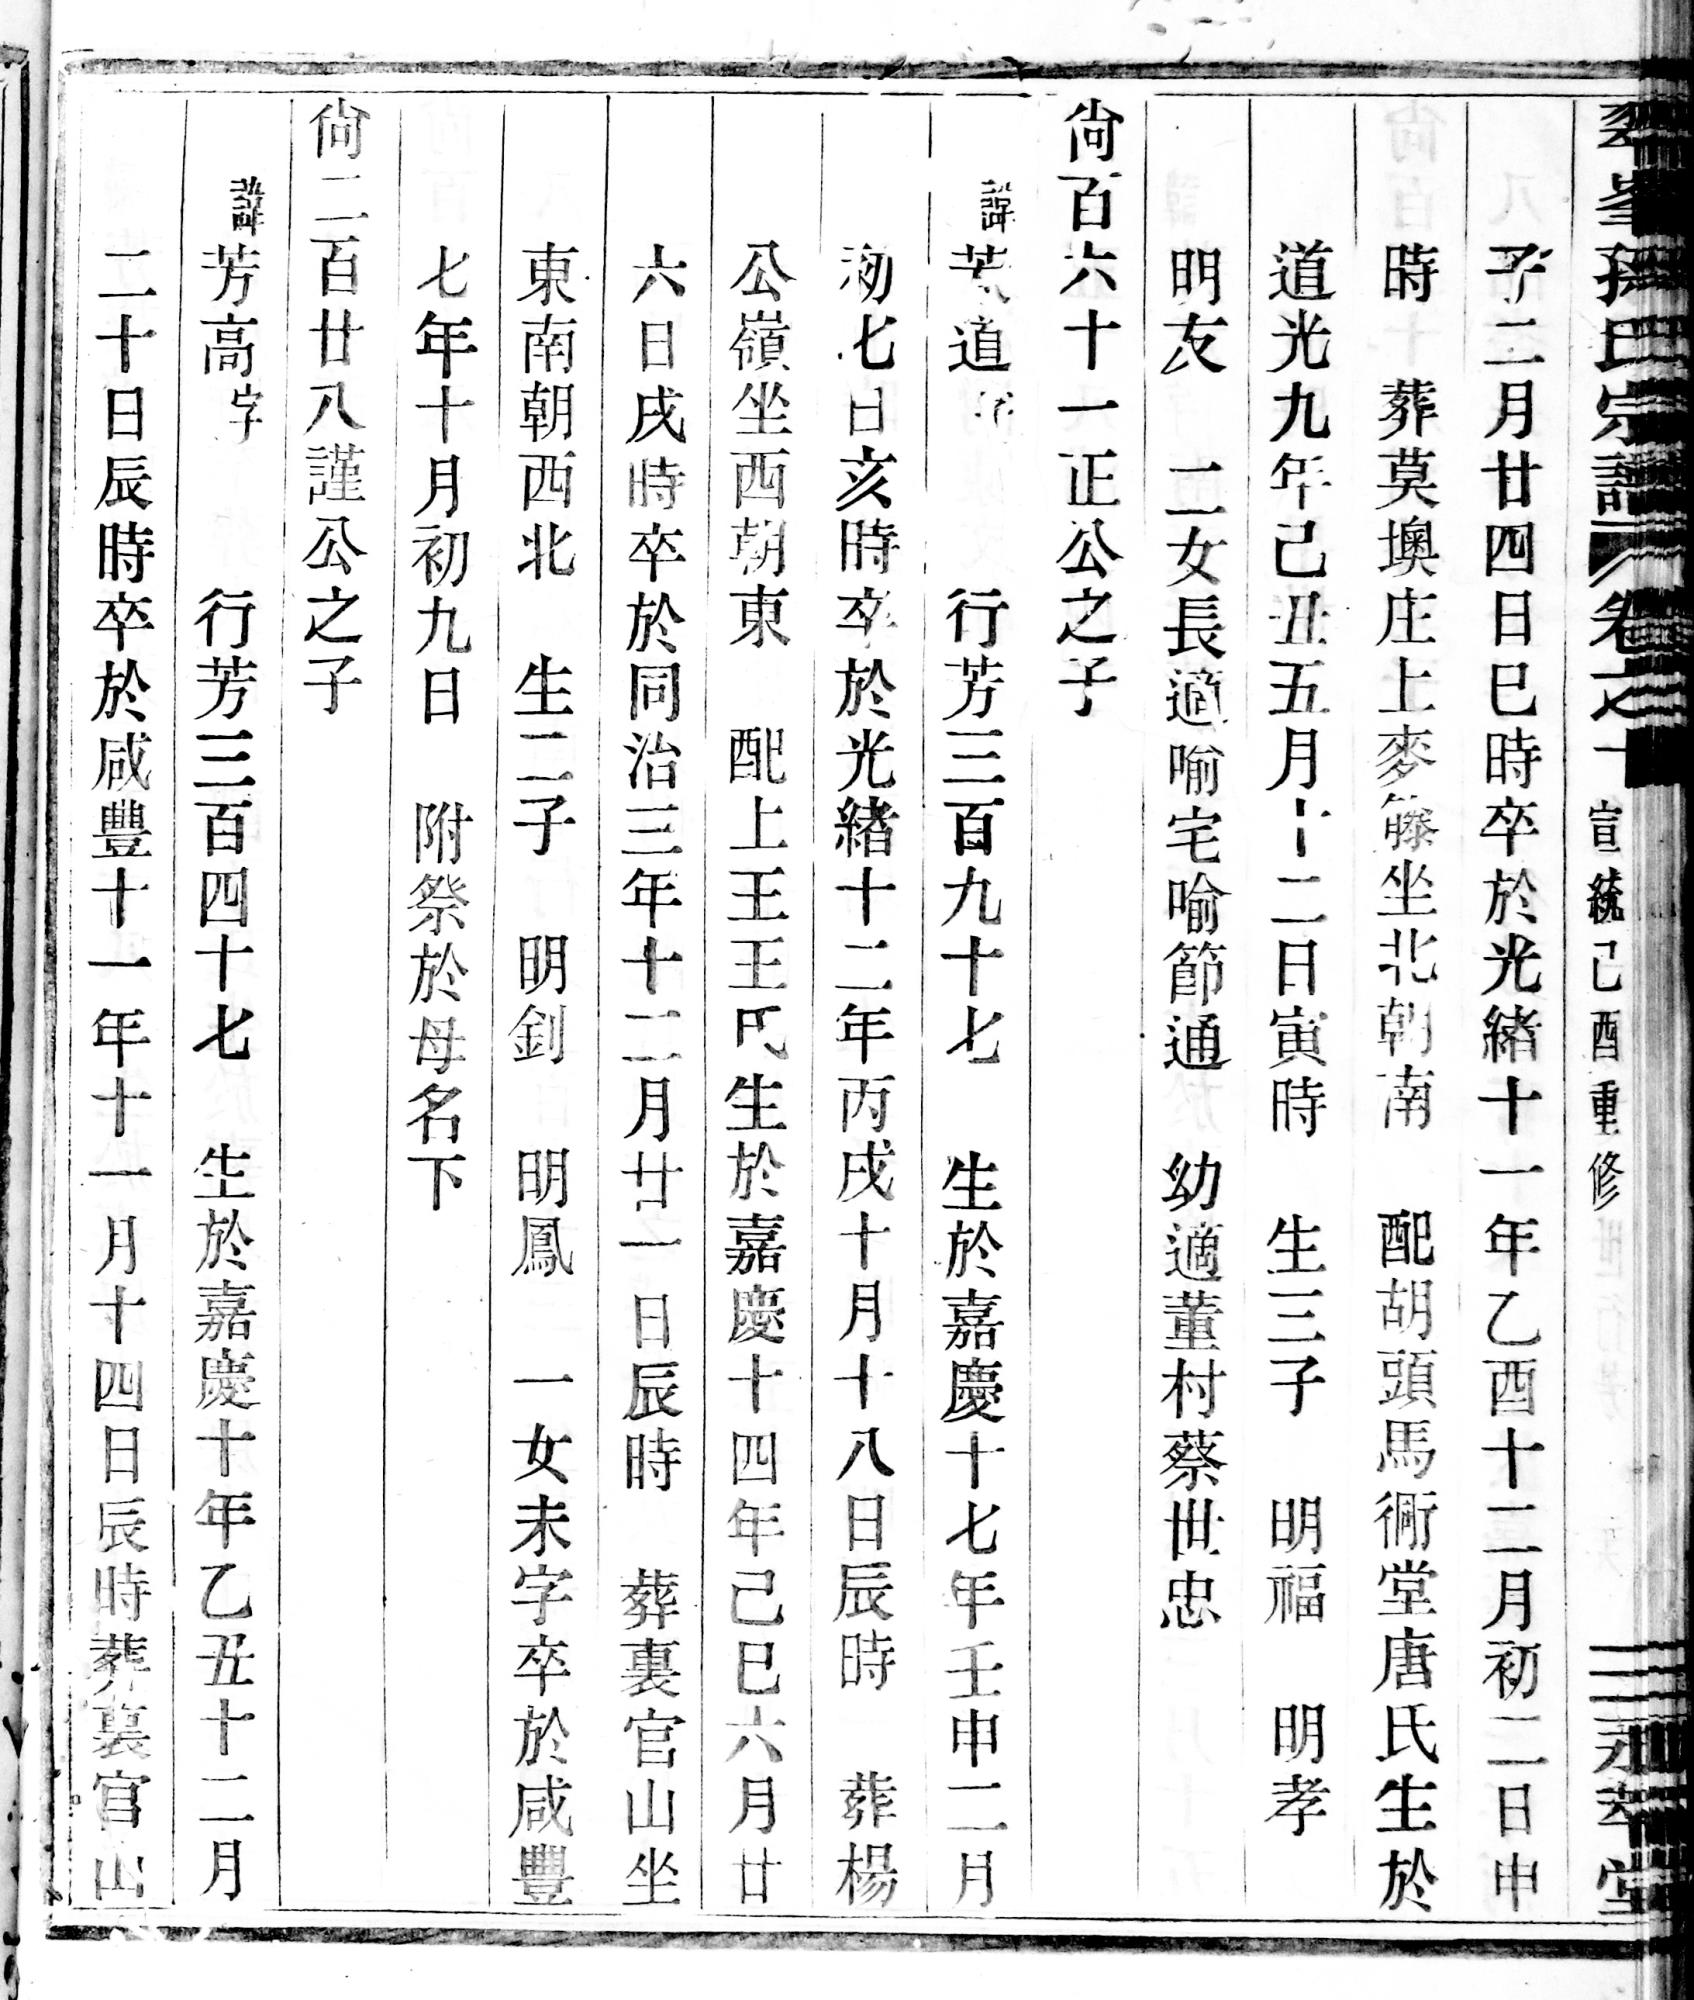 孫氏宗譜 卷之十 宣統己酉重修 萃堂
子二月廿四日巳時卒於光緒十一年乙酉十二月初二日申
時 葬莫墺庄上麥籐坐北朝南 配胡頭馬衕堂唐氏生於
道光九年己丑五月十二日寅時 生三子 明福 明孝
明友 二女長適喻宅喻節通 幼適董村蔡世忠
尙百六十一正公之子
諱芳道字 行芳三百九十七 生於嘉慶十七年壬申二月
初七日亥時卒於光緒十二年丙戌十月十八日辰時 葬楊
公嶺坐西朝東 配上王王氏生於嘉慶十四年己巳六月廿
六日戌時卒於同治三年十二月廿一日辰時 葬裏官山坐
東南朝西北 生二子 明釗 明鳳 一女未字卒於咸豐
七年十月初九日 附祭於母名下
尙二百廿八謹公之子
諱芳高字 行芳三百四十七 生於嘉慶十年乙丑十二月
二十日辰時卒於咸豐十一年十一月十四日辰時葬裏官山